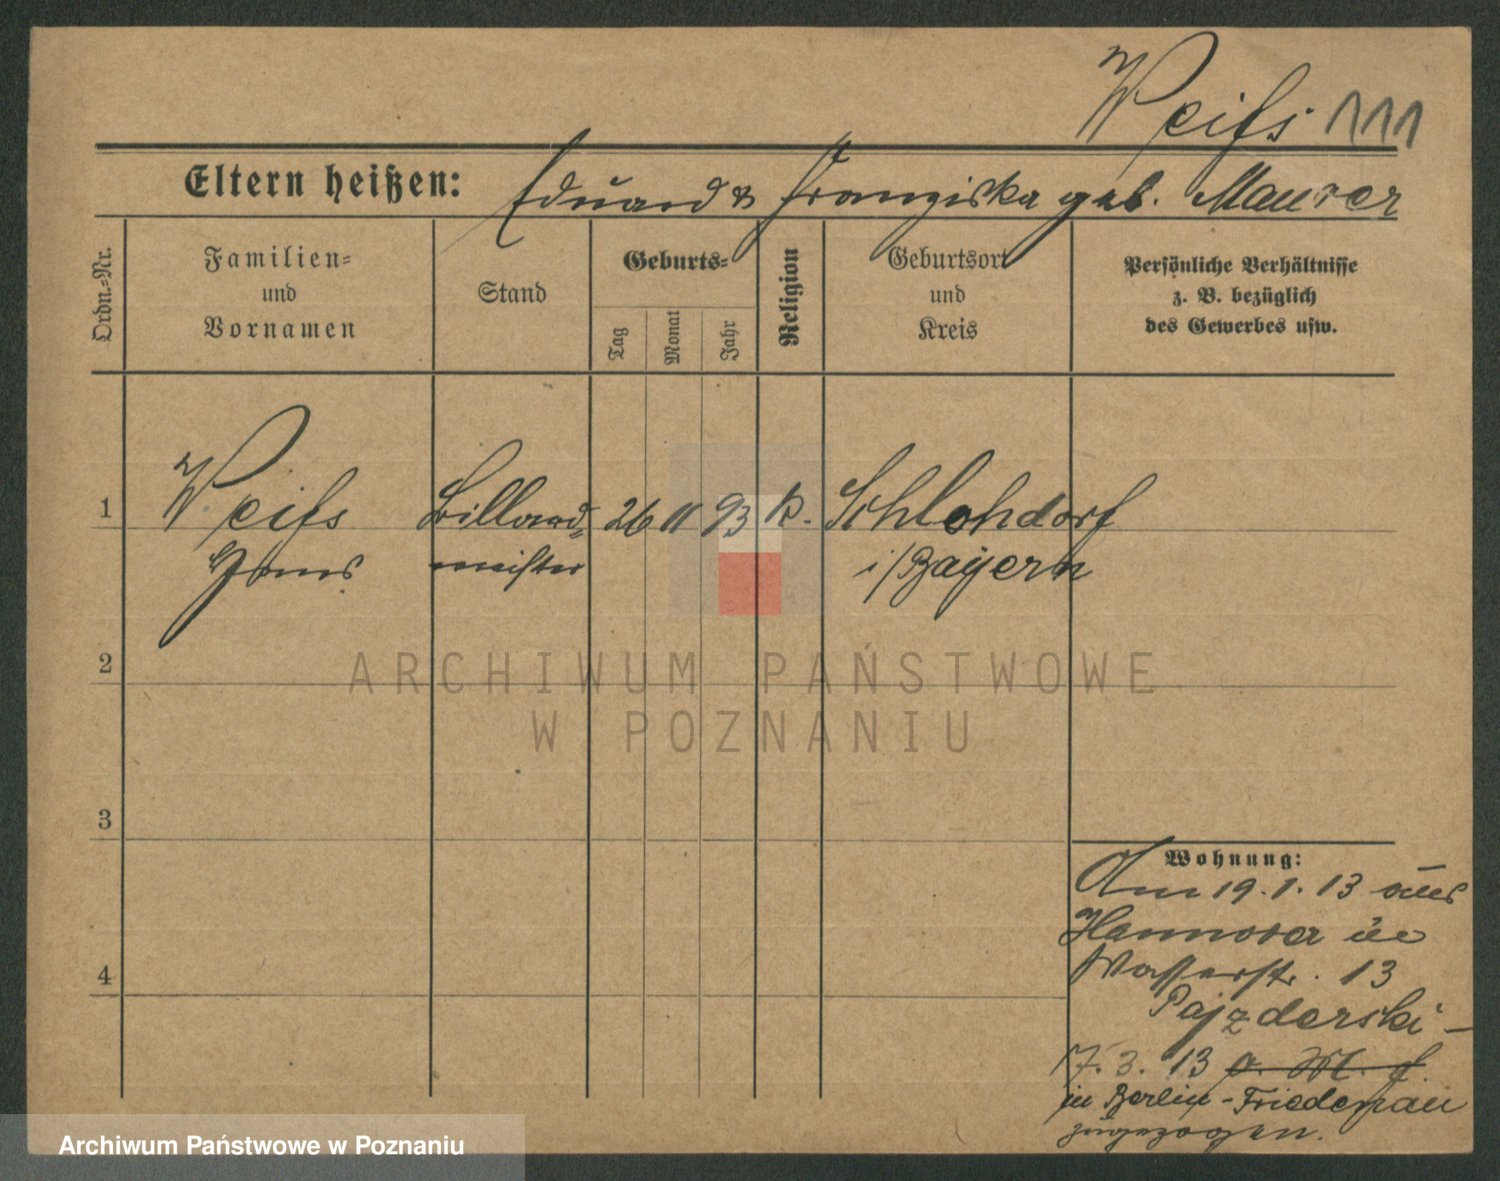 Weiß 111
Eltern heißen: Eduard & Franziska geb. Maurer
Ordn.-Nr.
Familien-
und
Vornamen
Stand
Geburts-
Tag
Monat
Jahr
Religion
Geburtsort
und
Kreis
Persönliche Verhältnisse
z. B. bezüglich
des Gewerbes usw.
1 Weiß Billard= 26 11 93 k. Schlehdorf
Hans meister i/Bayern
2
3
4
Wohnung:
Am 19.1.13 aus
Hannover in
Wasserstr. 13
Pajzderski -
17.3.13
in Berlin-Friedenau
zugezogen.
ARCHIWUM PAŃSTWOWE
W POZNANIU
Archiwum Państwowe w Poznaniu